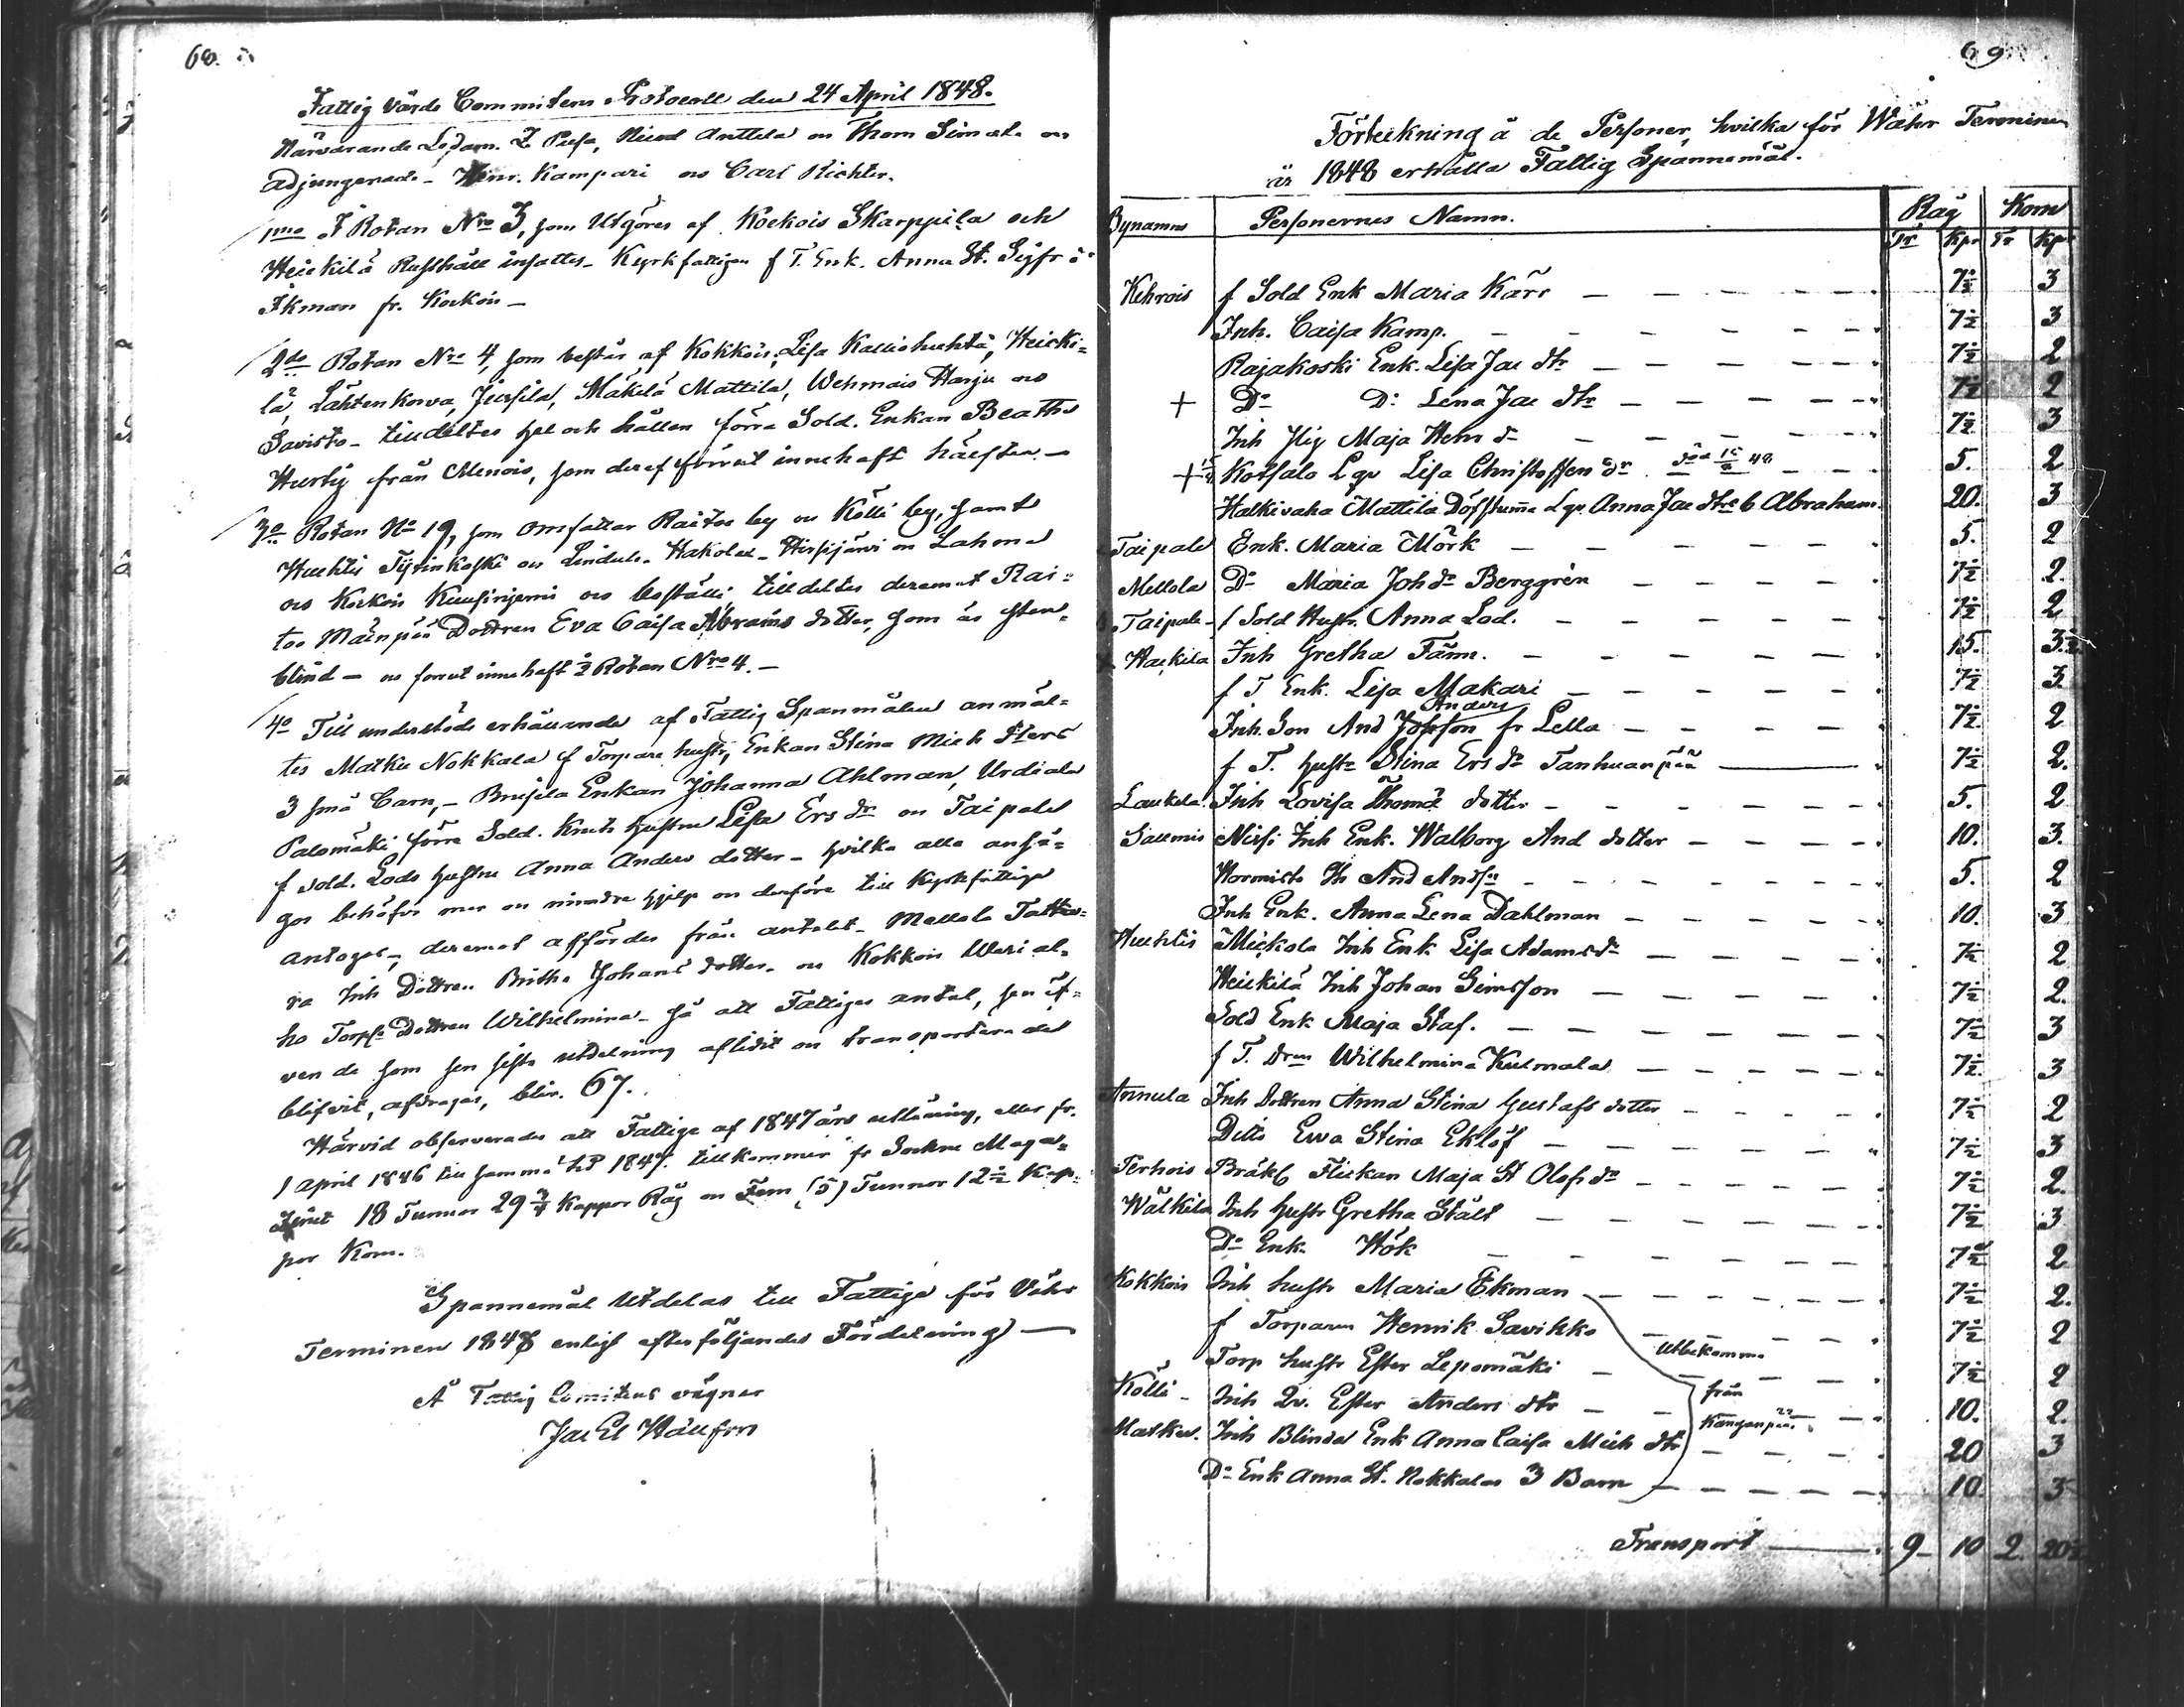 68.
Fattig Vårds Commitens Protocoll den 24 April 1848.
Närvarande Ledam. Anttila oc Thom Simola oc
adjungerade - Henr. Kampari oc Carl Richter.
1mo I Rotan Nro 3, som utgöres af Kockois Skarppila och
Heickilä Rusthåll insattes - Kyrkfattigen f T. Enk. Anna St. Sigfr
Ekman fr. Kockois -
2do Rotan Nro 4, som består af Kokkois, Lisa Kalliohuhta, Heicki-
lä, Lähtenkorva, Jussila, Mäkelä Mattila, Wehmais Harju oc
Savisto - tilldeltes hel och hållen förra Sold. Enkan Beatha
Hurtig från Menois, som deraf förrut innehaft hälften. -
3o Rotan No 19, som omfattar Raitoo by oc Kölli by, samt
Huhtis Tyrinkoski oc Lindula. Hakolax - Hirsijärvi oc Lahma
oc Kockois Kuusiniemi oc boställe tilldeltes deremot Rai-
too Mäenpää Dottren Eva Caisa Abrams dotter, som är sten-
blind - oc forrut innehaft ½ Rotan Nro 4. -
4o Till understöds erhållande af Fattig Spanmålen anmäl-
tes Matku Nokkala f Torpare hustr, Enkan Stina Mich dters
3 små barn, - Brusila Enkan Johanna Ahlman, Urdiala
Palomäki förra Sold. Knuts hustru Lisa Ers dr oc Taipale
f sold. Lods hustru Anna Anders dotter - hvilka alla anså-
gos behöfva mer oc mindre hjelp oc derföre till Kyrkfattige
antogos -, deremot affördes från antalet - Mellola Tatta-
ra Inh Dottren Britha Johans dotter. oc Kokkois Wari al-
ho Torps Dottren Wilhelmina - så att Fattiges antal, sen äf-
ven de som sen sista utdelning aflidit oc transporterade
blifvit, afdragas, blir. 67.
Härvid observerades att Fattige af 1847 års utläning, eller fr.
1 april 1846 till samma t.P 1847. tillkommer fr Sockne Maga-
zinet 18 Tunnor 29 ¾ Kappor Råg oc Fem (5) Tunnor 12 ½ Kap-
por Korn.
Spannemål Utdelas till Fattige för Våhr
Terminen 1848 enligt efterföljande Fördelning -
Å Fattig Comitens vägnar
69
Förteckning å de Personer, hvilka för Wåhr Terminen
år 1848 erhålla Fattig Spannemål.
Bynamn Personernes Namn. Råg Korn
Tr Kpr Tr Kpr
Kehrois f Sold Enk Maria Kärr 7½ 3
Inh. Caisa Kamp. 7½ 3
Rajakoski Enk. Lisa Jac dtr 7½ 2
+ Do Do Lena Jac dtr 7½ 2
Inh Pig Maja Henr dr 7½ 3
+ Kotsalo Lgr Lisa Christoffers dr. 48 5. 2
Halkivaha Mattila Döfstumme Lgr Anna Jac dtr o b Abraham 20. 3
Taipale Enk. Maria Mörk 5. 2
Mellola Do Maria Joh dr Berggrén 7½ 2.
Taipale f Sold Hustr. Anna Lod. 7½ 2
Haekila Inh Gretha Färm. 15. 3.½
f T Enk. Lisa Makari 7½ 3.
Inh. Son And Anders fr Lella 7½ 2
f T. hustr Stina Ers dr Tanhuanpää 7½ 2.
Laukela. Inh Lovisa Thomæ dotter 5. 2
Salmis Nissi Inh Enk. Walborg And dotter 10. 3.
Normisto Ih And Andsn 5. 2
Inh Enk. Anna Lena Dahlman 10. 3
Huhtis Mickola Inh Enk Lisa Adams dr 7½ 2
Heickilä Inh Johan Simsson 7½ 2.
Sold Enk Maja Staf. 7½ 3
f T. Dren Wilhelmina Kulmala 7½ 3
Annula Inh Dottren Anna Stina Gustafs dotter 7½ 2
Ditto Ewa Stina Eklöf 7½ 3
Terhois Bräkl Flickan Maja St Olofs dr 7½ 2.
Wälkila Inh hustr Gretha Stålt 7½ 3
Do Enk. Hök 7½ 2
Kokkois Inh hustr Maria Ekman 7½ 2.
f Torparen Henrik Savikko 7½ 2
Torp hustr Ester Lepomäki 7½ 2
Utbekomma
från
Kangenpää.
Kölli - Inh Qv. Ester Anders dtr 10. 2.
Matku. Inh Blinda Enk Anna Caisa Mich dtr 20 3
Do Enk Anna St. Nokkalas 3 Barn 10. 3
Transport 9 10 2 20½